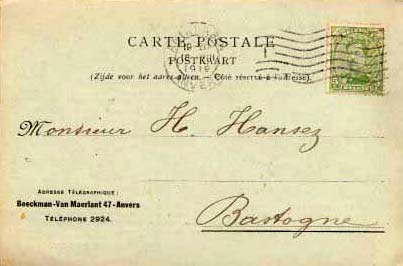 CARTE POSTALE
POSTKAART
(Zijde voor het adres alleen. — Côté réservé à l'adresse).
Monsieur H. Hansez
ADRESSE TÉLÉGRAPHIQUE:
Beeckman-Van Maerlant 47-Anvers
TÉLÉPHONE 2924.
Bastogne